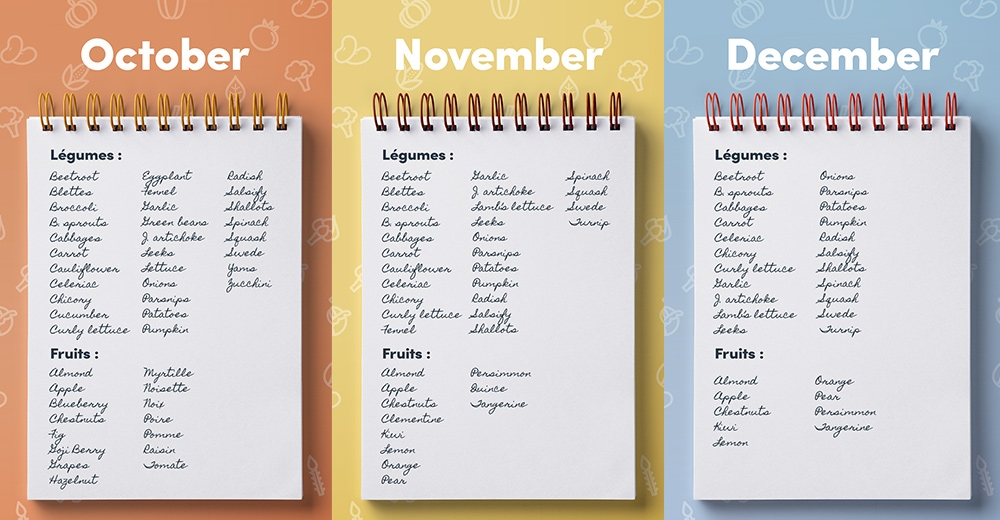 October
Légumes :
Beetroot Eggplant Radish
Blettes Fennel Salsify
Broccoli Garlic Shallots
B. sprouts Green beans Spinach
Cabbages J. artichoke Squash
Carrot Leeks Swede
Cauliflower Lettuce Yams
Celeriac Onions Zucchini
Chicory Parsnips
Cucumber Patatoes
Curly lettuce Pumpkin
Fruits :
Almond Myrtille
Apple Noisette
Blueberry Noix
Chestnuts Poire
Fig Pomme
Goji Berry Raisin
Grapes Tomate
Hazelnut
November
Légumes :
Beetroot Garlic Spinach
Blettes J. artichoke Squash
Broccoli Lamb's lettuce Swede
B. sprouts Leeks Turnip
Cabbages Onions
Carrot Parsnips
Cauliflower Patatoes
Celeriac Pumpkin
Chicory Radish
Curly lettuce Salsify
Fennel Shallots
Fruits :
Almond Persimmon
Apple Quince
Chestnuts Tangerine
Clementine
Kiwi
Lemon
Orange
Pear
December
Légumes :
Beetroot Onions
B. sprouts Parsnips
Cabbages Patatoes
Carrot Pumpkin
Celeriac Radish
Chicory Salsify
Curly lettuce Shallots
Garlic Spinach
J. artichoke Squash
Lamb's lettuce Swede
Leeks Turnip
Fruits :
Almond Orange
Apple Pear
Chestnuts Persimmon
Kiwi Tangerine
Lemon